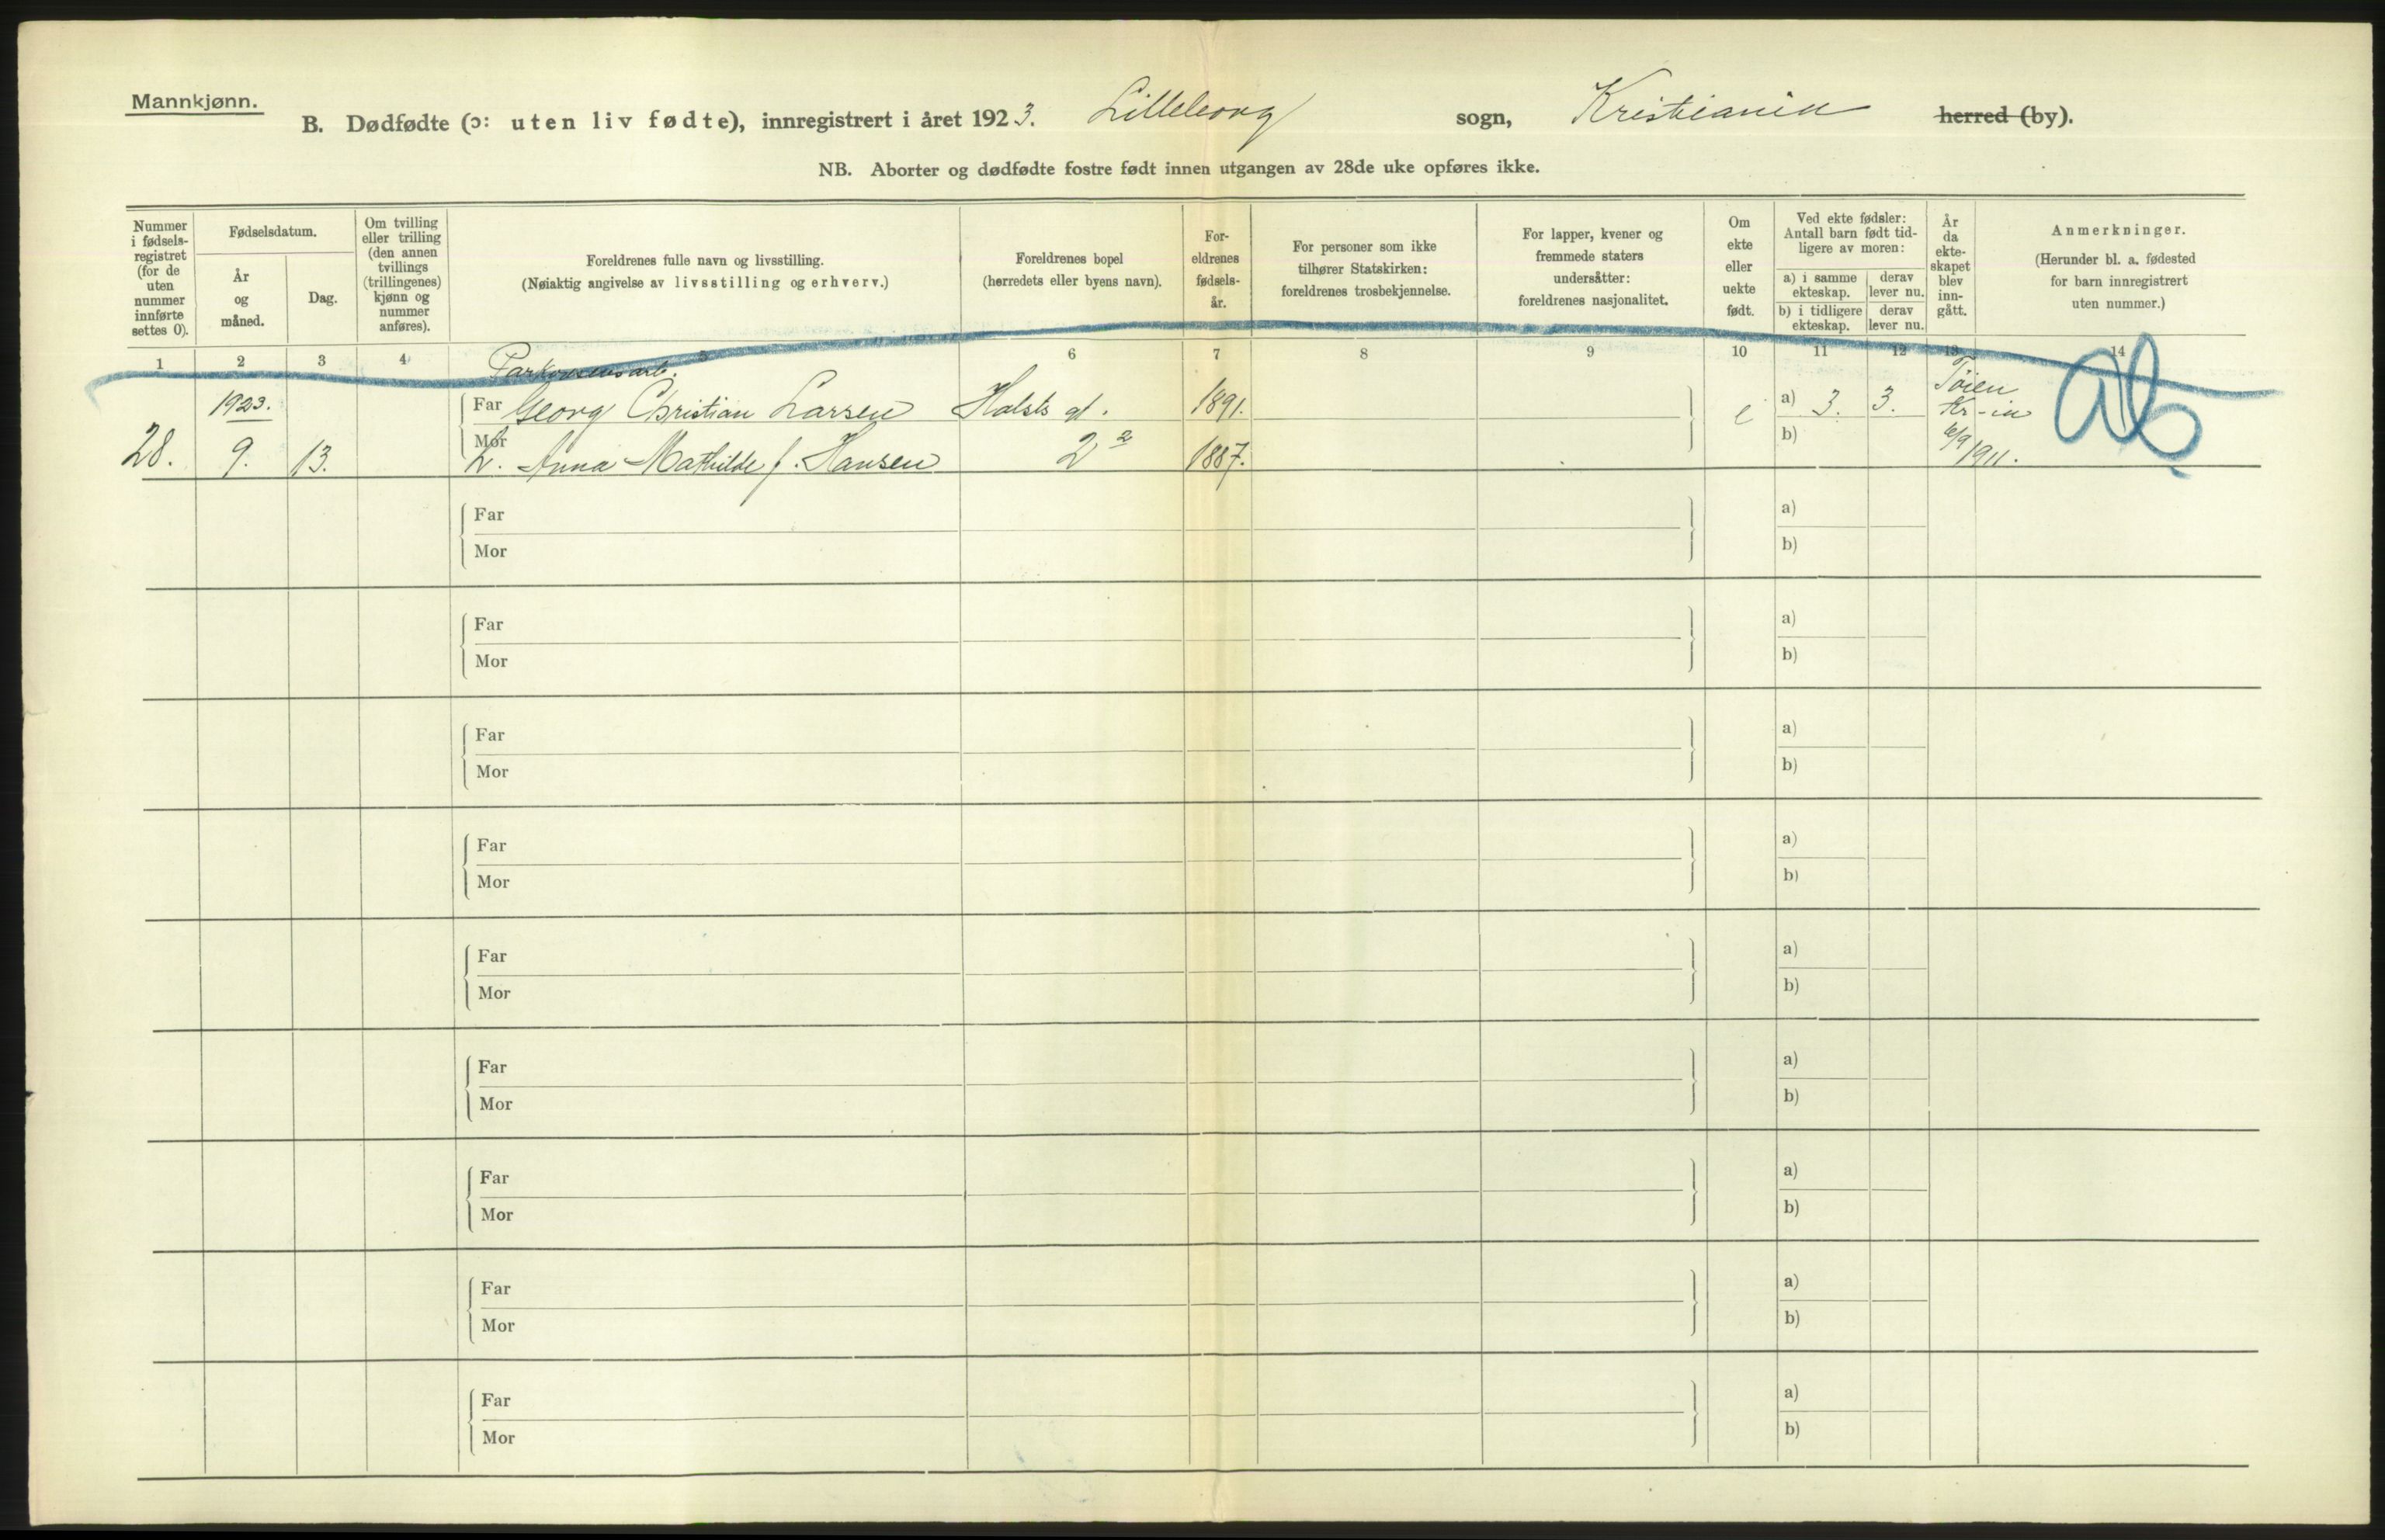 Mannkjønn.
B. Dødfødte (ɔ: uten liv fødte), innregistrert i året 1923. Lilleborg sogn, Kristiania herred (by).
NB. Aborter og dødfødte fostre født innen utgangen av 28de uke opføres ikke.
Nummer i fødsels-registret (for de uten nummer innførte settes 0).
Fødselsdatum.
År og måned.
Dag.
Om tvilling eller trilling (den annen tvillings (trillingenes) kjønn og nummer anføres).
Foreldrenes fulle navn og livsstilling.
(Nøiaktig angivelse av livsstilling og erhverv.)
Foreldrenes bopel
(herredets eller byens navn).
For-eldrenes fødsels-år.
For personer som ikke tilhører Statskirken: foreldrenes trosbekjennelse.
For lapper, kvener og fremmede staters undersåtter: foreldrenes nasjonalitet.
Om ekte eller uekte født.
Ved ekte fødsler: Antall barn født tid-ligere av moren:
a) i samme ekteskap. derav lever nu.
b) i tidligere ekteskap. derav lever nu.
År da ekte-skapet blev inn-gått.
Anmerkninger.
(Herunder bl. a. fødested for barn innregistrert uten nummer.)
1 2 3 4 5 6 7 8 9 10 11 12 13 14
1923.
Far Georg Christian Larsen Halsts gt. 1891. e a) 3. 3. Tøien
Kr-ia
28. 9. 13. Mor H. Anna Mathilde f. Hansen 2² 1887. b) 6/9 1911.
Far a)
Mor b)
Far a)
Mor b)
Far a)
Mor b)
Far a)
Mor b)
Far a)
Mor b)
Far a)
Mor b)
Far a)
Mor b)
Far a)
Mor b)
Far a)
Mor b)